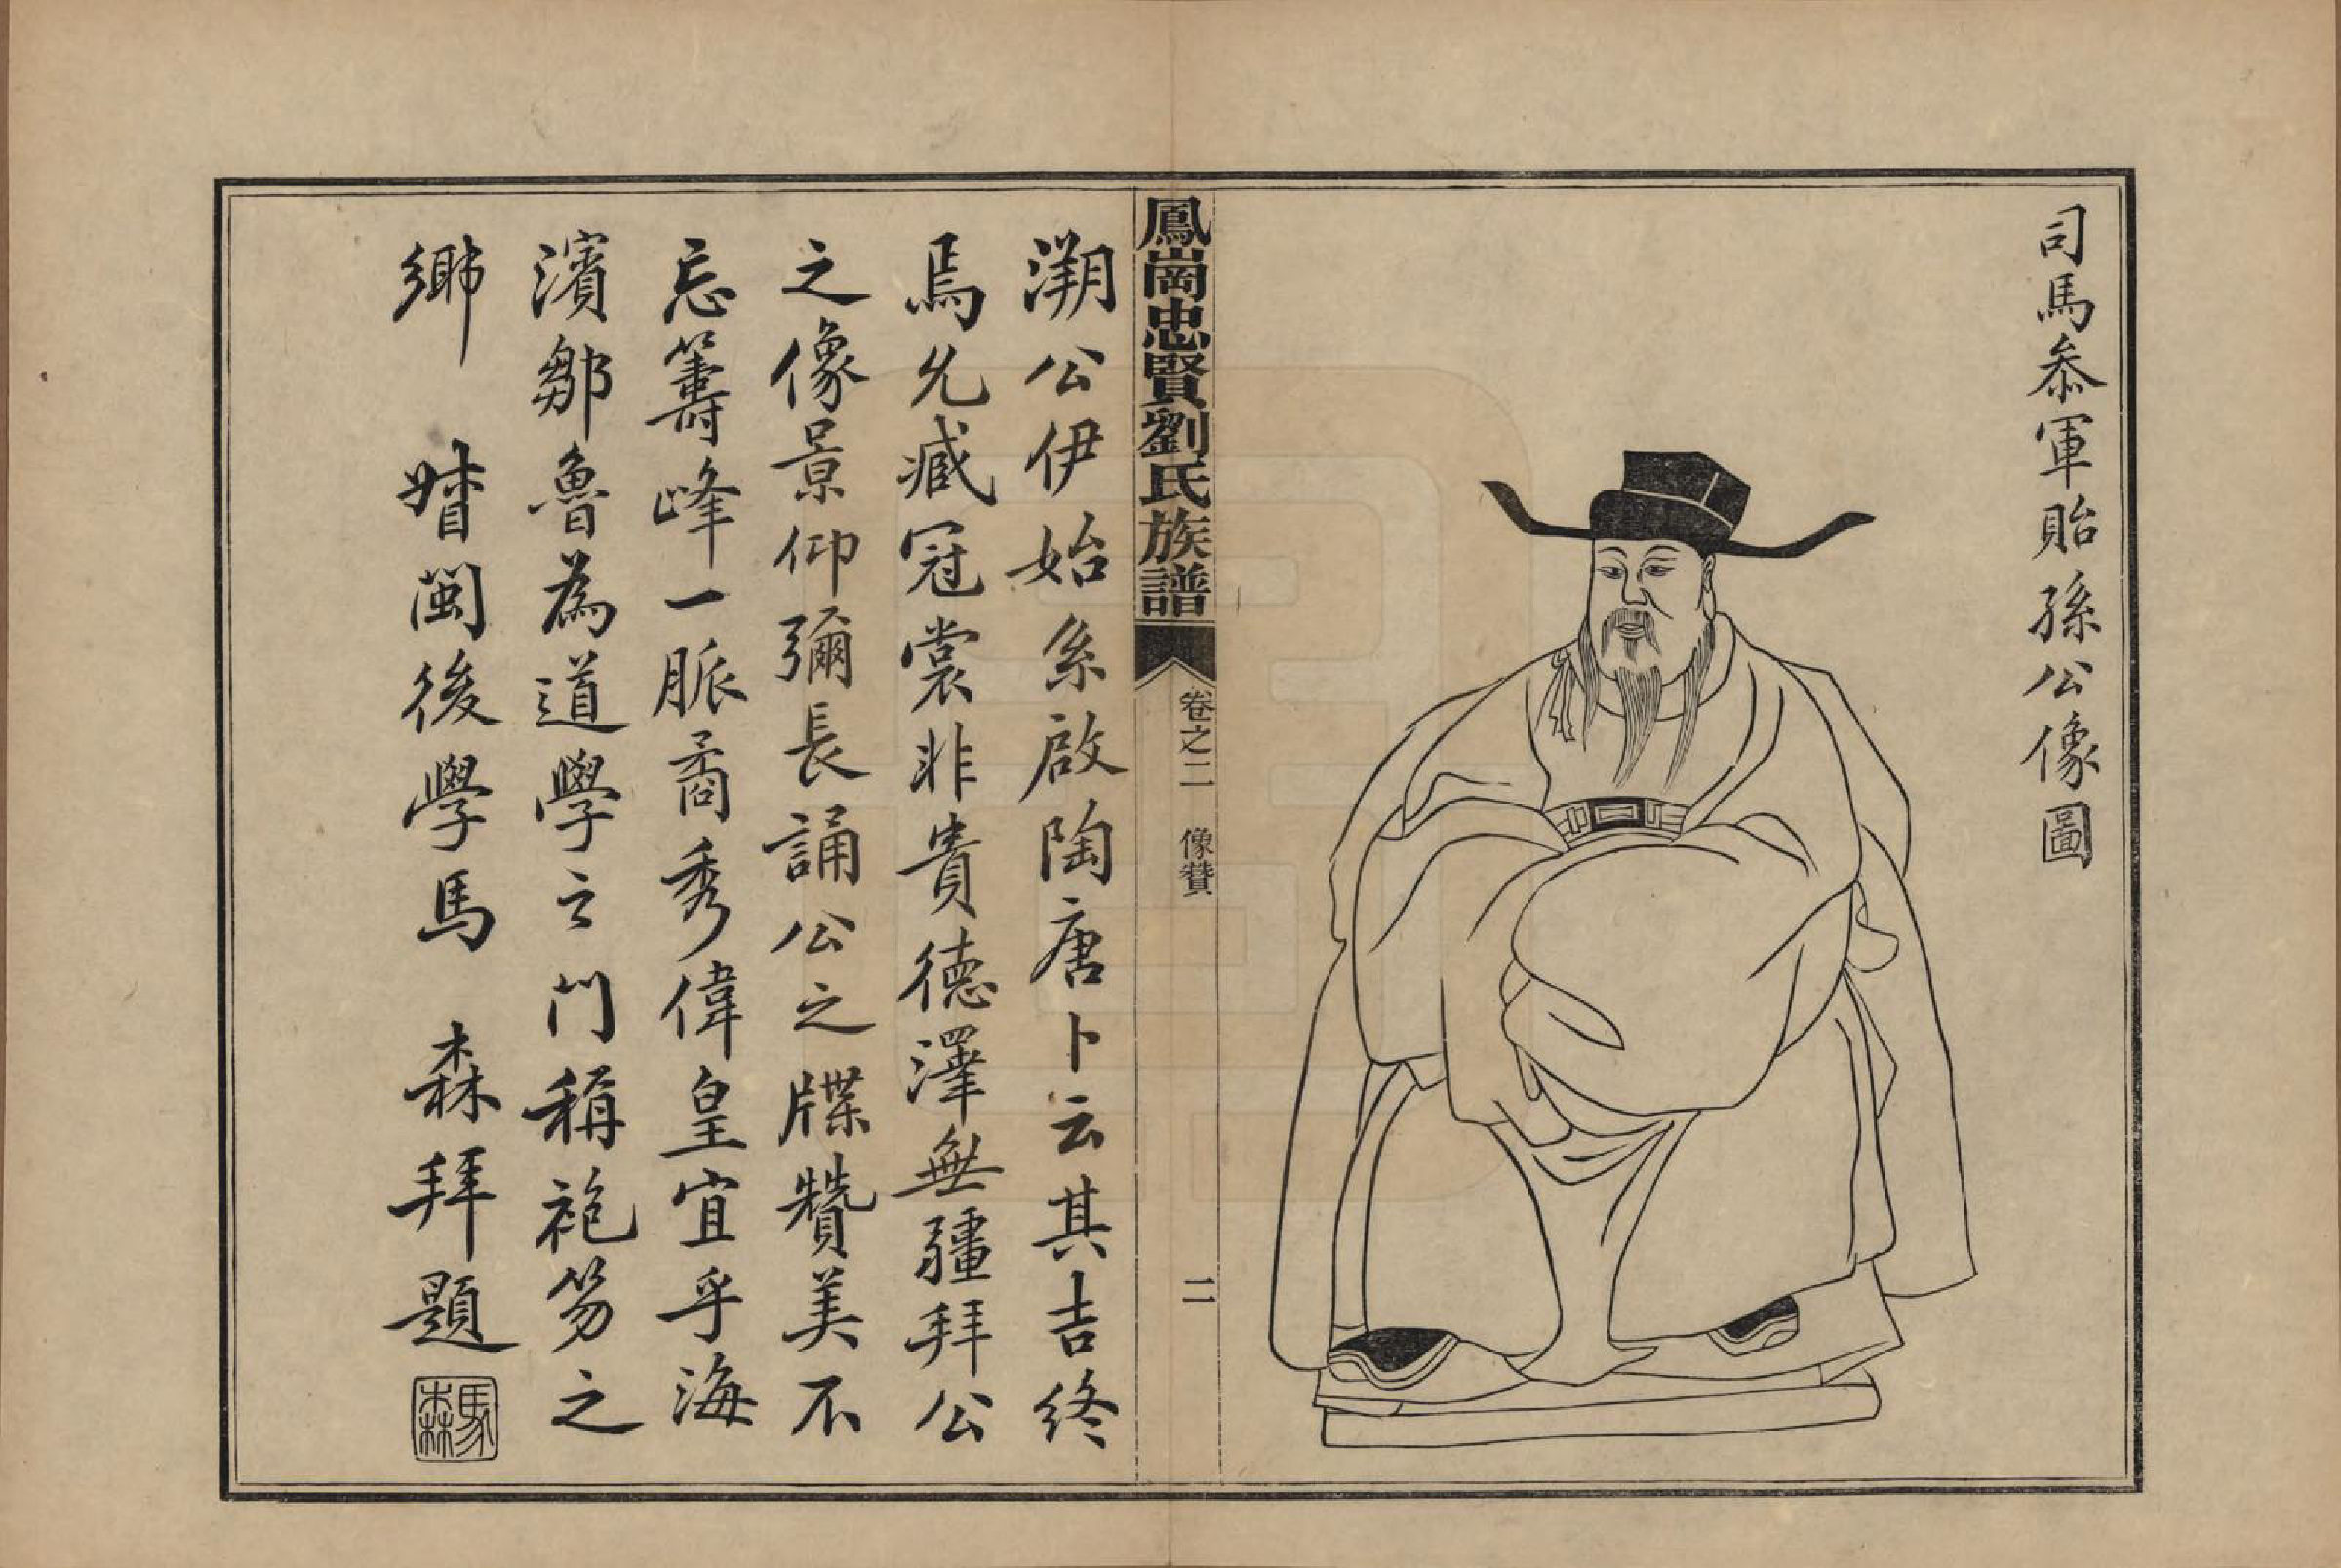 司馬叅軍貽孫公像圖
鳳崗忠賢劉氏族譜
卷之二 像贊
二
溯公伊始系啟陶唐卜云其吉終
焉允臧冠裳非貴德澤無疆拜公
之像景仰彌長誦公之牒贊美不
忘籌峰一脈矞秀偉皇宜乎海
濱鄒魯為道學之門稱袍笏之
鄉 閩後學馬 森拜題
馬森